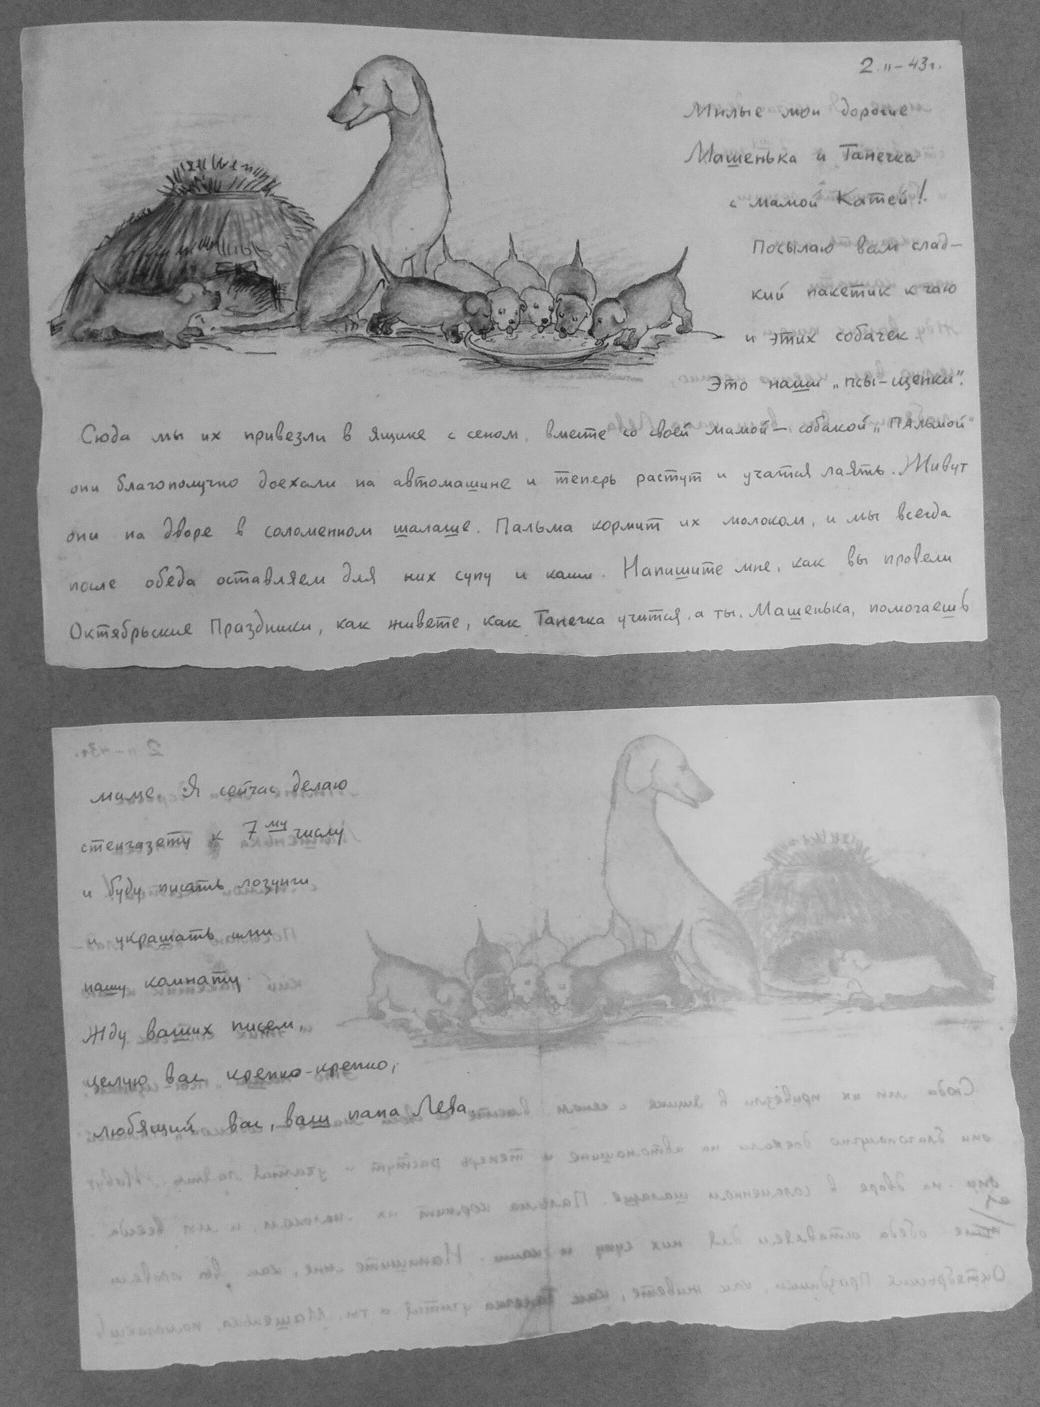 2 11-43г.
Милые мои дорогие
Машенька и Танечка
с мамой Катей!
Посылаю вам слад-
кий пакетик к чаю
и этих собачек
Это наши „псы-щенки“.
Сюда мы их привезли в ящике с сеном, вместе со своей мамой — собакой „Пальмой“
они благополучно доехали на автомашине и теперь растут и учатся лаять. Живут
они на дворе в соломенном шалаше. Пальма кормит их молоком, и мы всегда
после обеда оставляем для них супу и каши. Напишите мне, как вы провели
Октябрьские Праздники, как живете, как Танечка учится, а ты, Машенька, помогаешь
маме. Я сейчас делаю
стенгазету к 7му числу
и буду писать лозунги
и украшать ими
нашу комнату.
Жду ваших писем,
целую вас крепко-крепко,
любящий вас, ваш папа Лёва.